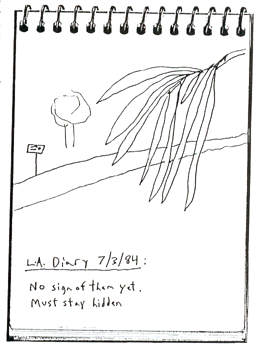 L.A. Diary 7/3/84:
No sign of them yet.
Must stay hidden